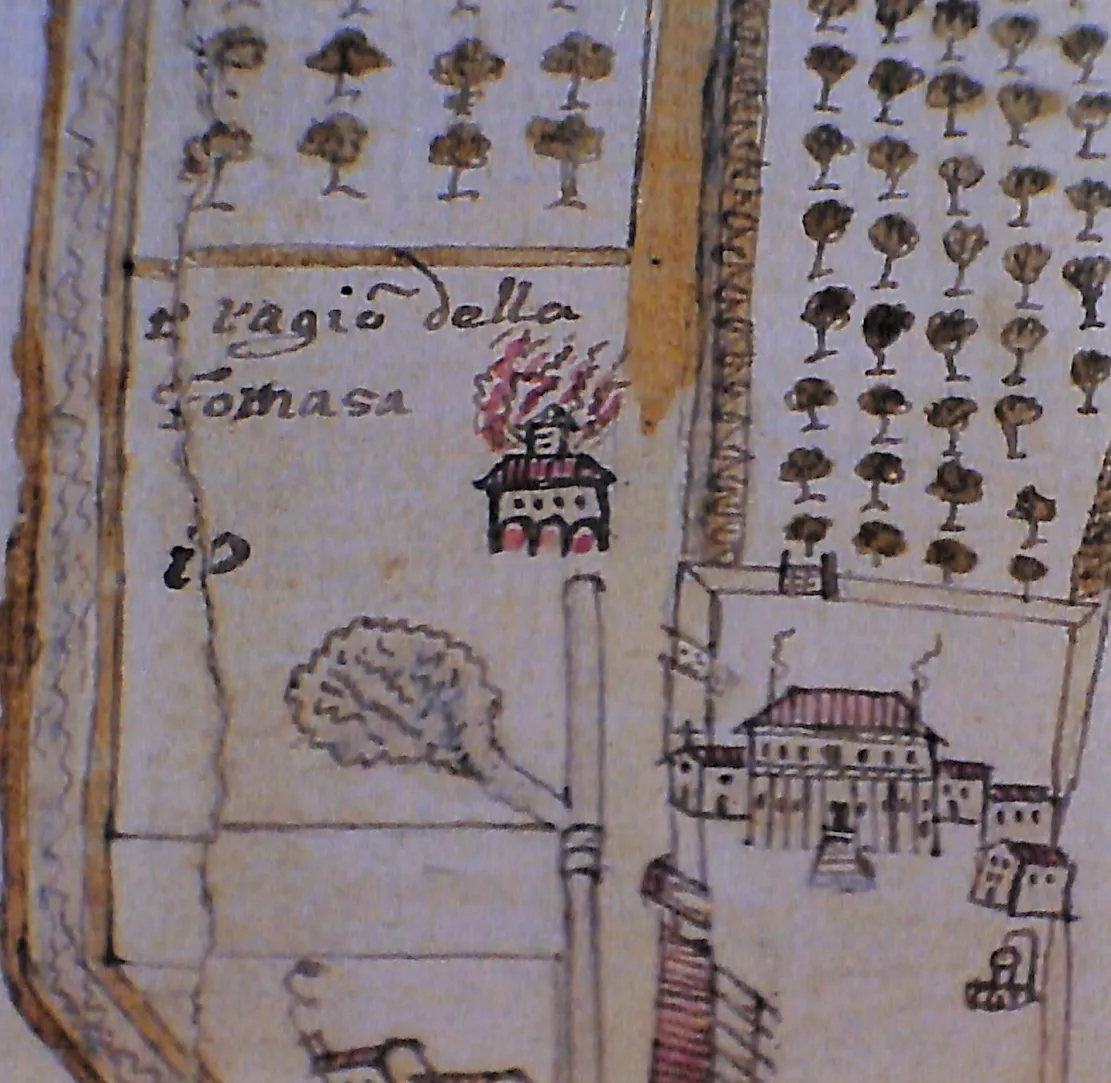 ragiõ della
Fornasa